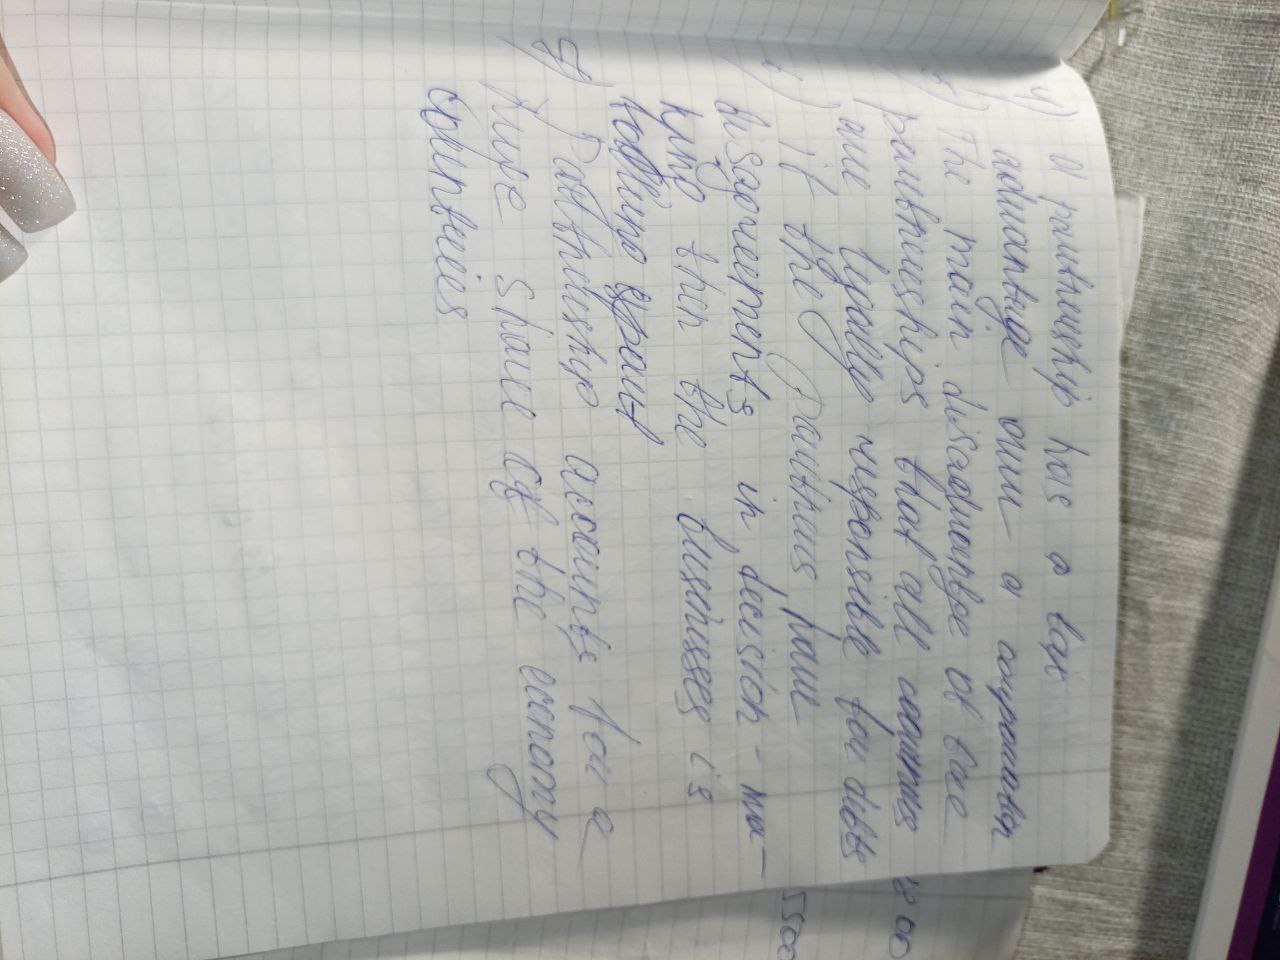 4) A partnership has a tax
advantage over a corporation
5) The main disadvantage of the
partnerships that all owners
are legally responsible for debts
6) if the partners have
disagreements in decision-ma-
king then the businisses is
expant
7) Partnership accounts for a
huge share of the economy
countries
5500